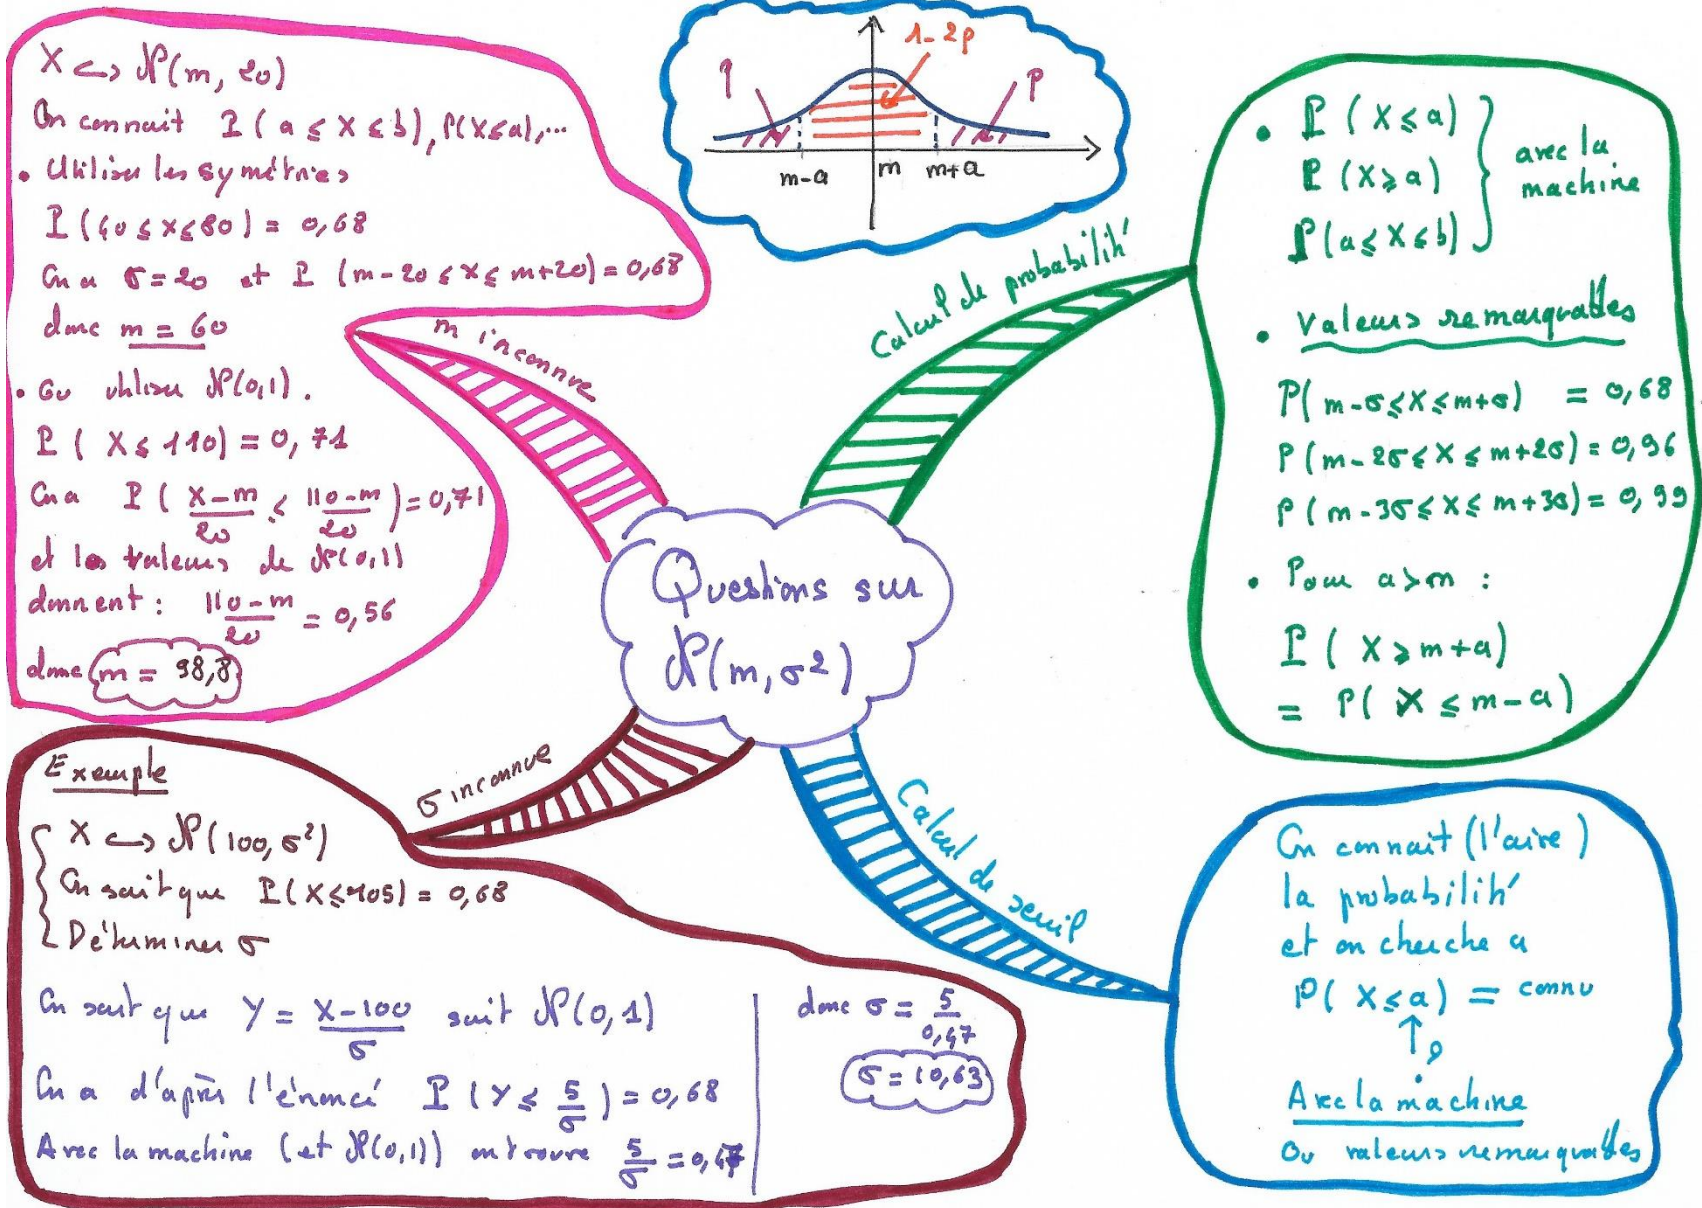 X ↪ N(m, 20)
On connait P(a ≤ X ≤ b), P(X≤a),...
• Utiliser les symétries
P(40 ≤ X ≤ 80) = 0,68
On a σ=20 et P(m-20 ≤ X ≤ m+20) = 0,68
donc m = 60
• Ou utiliser N(0,1).
P(X ≤ 110) = 0,71
On a P(X-m/20 ≤ 110-m/20) = 0,71
et les valeurs de N(0,1)
donnent : 110-m/20 = 0,56
donc m = 98,8
m inconnue
1-2p
p
m-a
m
m+a
Calcul de probabilité
• P(X ≤ a)
P(X ≥ a)
P(a ≤ X ≤ b)
avec la
machine
• Valeurs remarquables
P(m-σ ≤ X ≤ m+σ) = 0,68
P(m-2σ ≤ X ≤ m+2σ) = 0,96
P(m-3σ ≤ X ≤ m+3σ) = 0,99
• Pour a>m :
P(X ≥ m+a)
= P(X ≤ m-a)
Questions sur
N(m, σ²)
σ inconnue
Exemple
X ↪ N(100, σ²)
On sait que P(X≤105) = 0,68
Déterminer σ
On sait que Y = X-100/σ suit N(0,1)
On a d'après l'énoncé P(Y ≤ 5/σ) = 0,68
Avec la machine (et N(0,1)) on trouve 5/σ = 0,47
donc σ = 5/0,47
σ = 10,63
Calcul de seuil
On connait (l'aire)
la probabilité
et on cherche a
P(X ≤ a) = connu
↑
Avec la machine
Ou valeurs remarquables